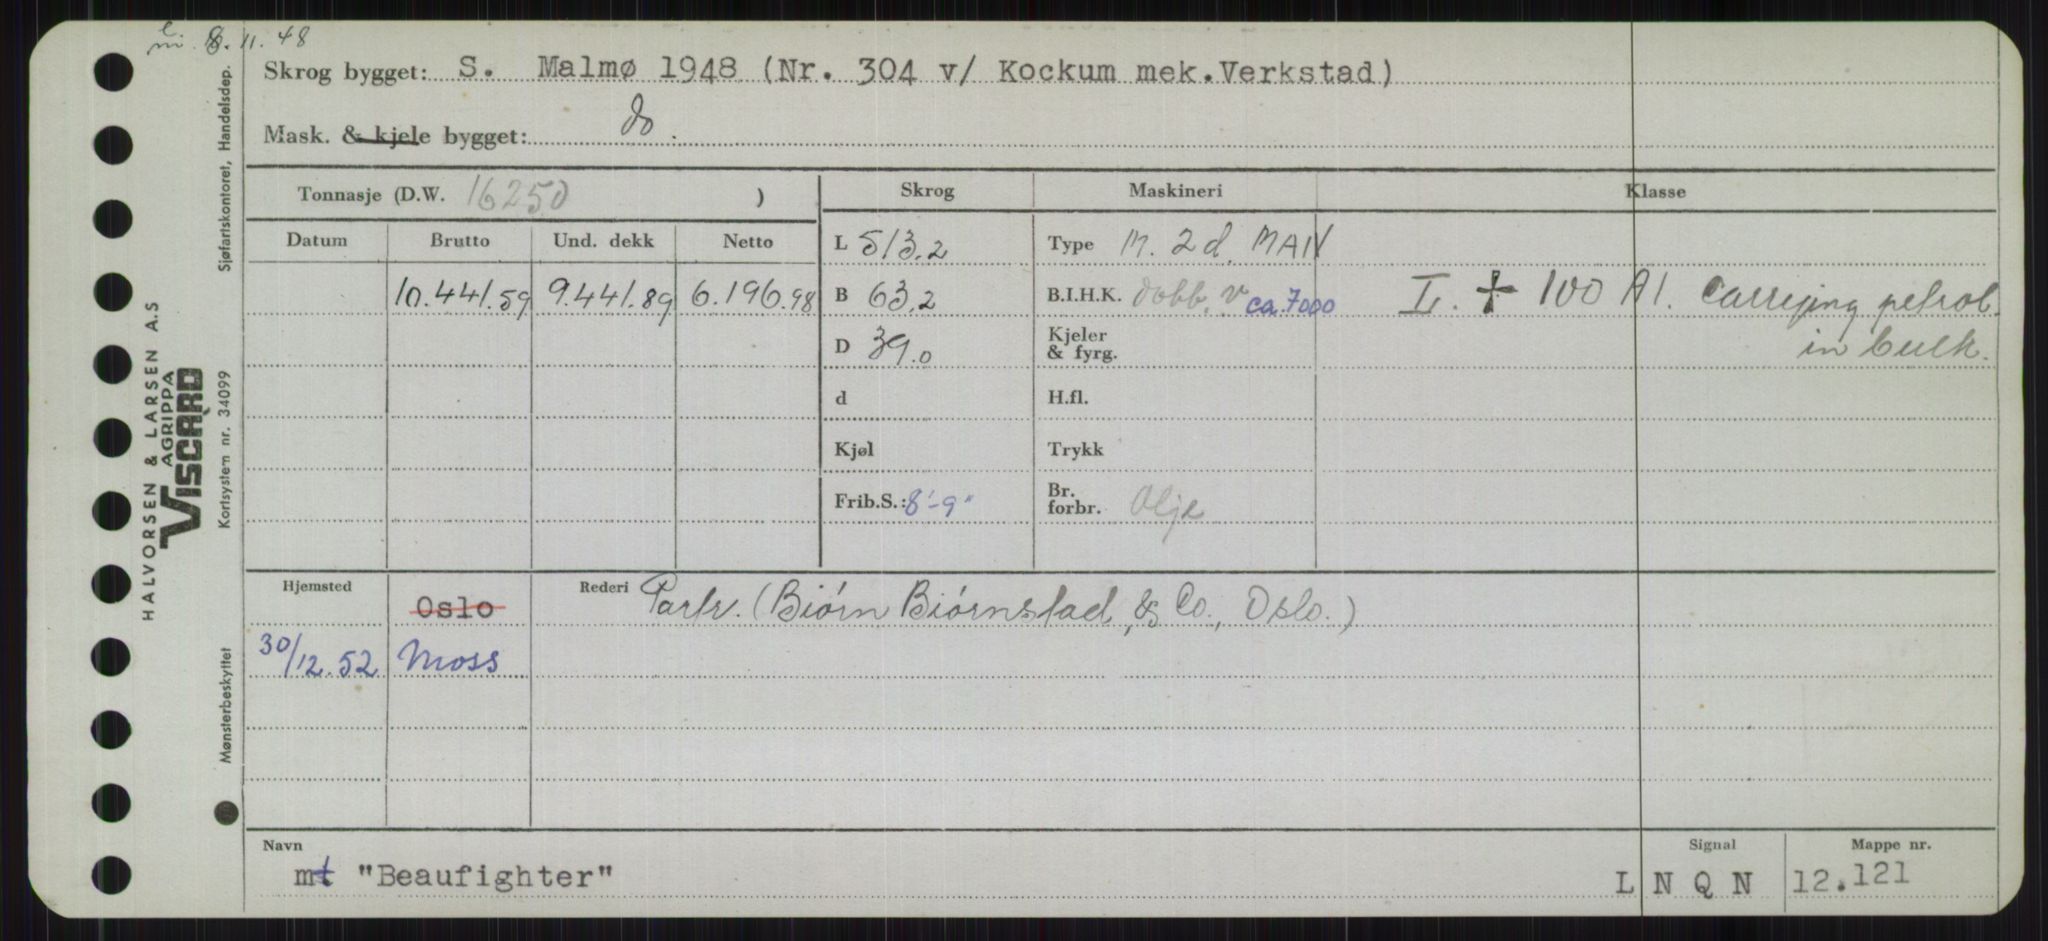 l
m. 8. 11. 48
Skrog bygget: S. Malmø 1948 (Nr. 304 v/ Kockum mek.Verkstad)
Mask. & kjele bygget: do.
Tonnasje (D.W. 16250 )
Skrog Maskineri Klasse
Datum Brutto Und. dekk Netto
L 513.2 Type M. 2 d. MAN
10.441.59 9.441.89 6.196.98
B 63.2 B.I.H.K. dobb. v ca. 7000 I. + 100 A1. Carrying petrol.
in bulk.
D 39.0 Kjeler
& fyrg.
d H.fl.
Kjøl Trykk
Frib.S.: 8'-9" Br.
forbr. Olje
Hjemsted Oslo Rederi Partr. (Biørn Biørnstad & Co., Oslo.)
30/12.52 Moss
Navn Signal Mappe nr.
mt "Beaufighter" L N Q N 12.121
HALVORSEN & LARSEN A.S
AGRIPPA
VISCARD
Mønsterbeskyttet Kortsystem nr. 34099 Sjøfartskontoret, Handelsdep.